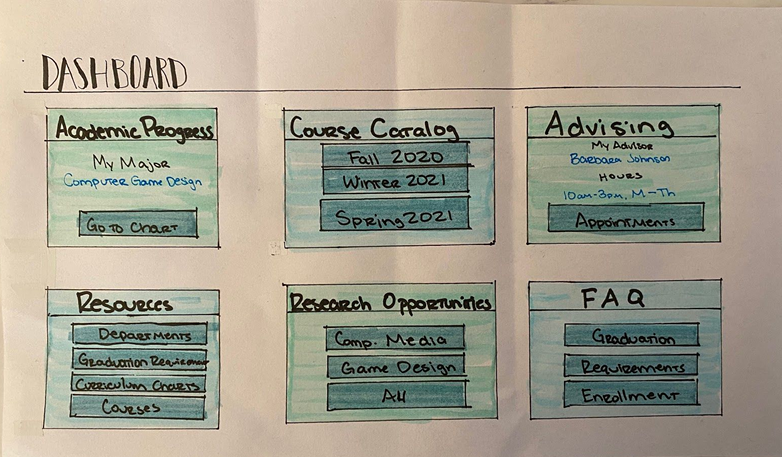 DASHBOARD
Academic Progress
My Major
Computer Game Design
Go to Chart
Course Catalog
Fall 2020
Winter 2021
Spring 2021
Advising
My Advisor
Barbara Johnson
Hours
10am-3pm, M-Th
Appointments
Resources
Departments
Graduation Requirement
Curriculum Charts
Courses
Research Opportunities
Comp. Media
Game Design
All
FAQ
Graduation
Requirements
Enrollment